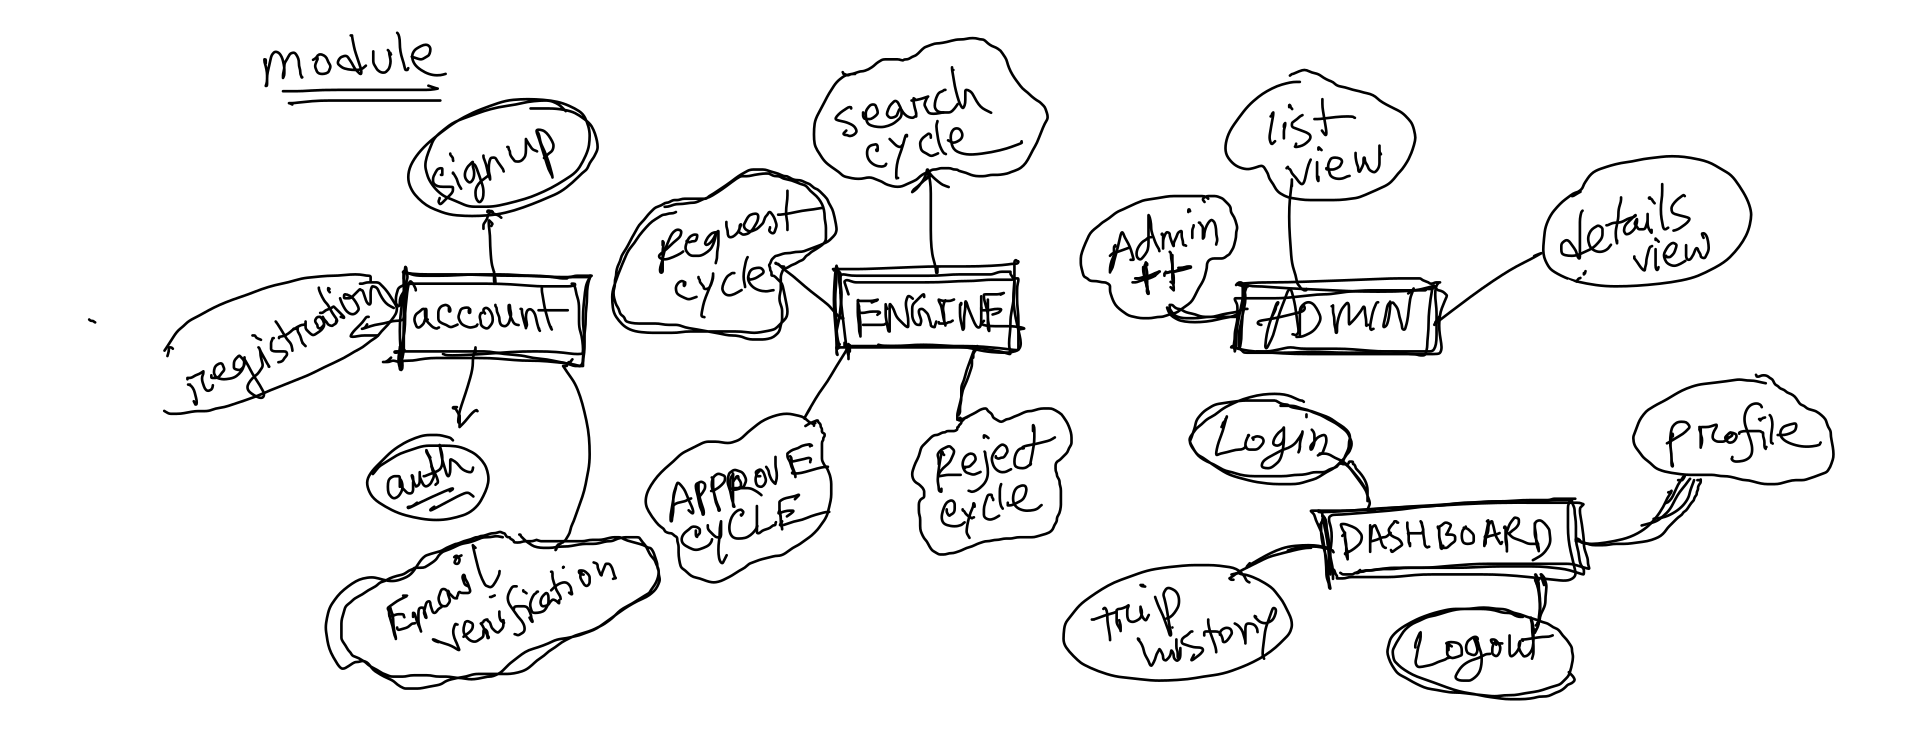 module
signup
registration
account
auth
Email
verification
search
cycle
Request
cycle
ENGINE
APPROVE
CYCLE
Reject
cycle
list
view
Admin
++
details
view
ADMIN
Login
profile
DASHBOARD
trip
history
Logout